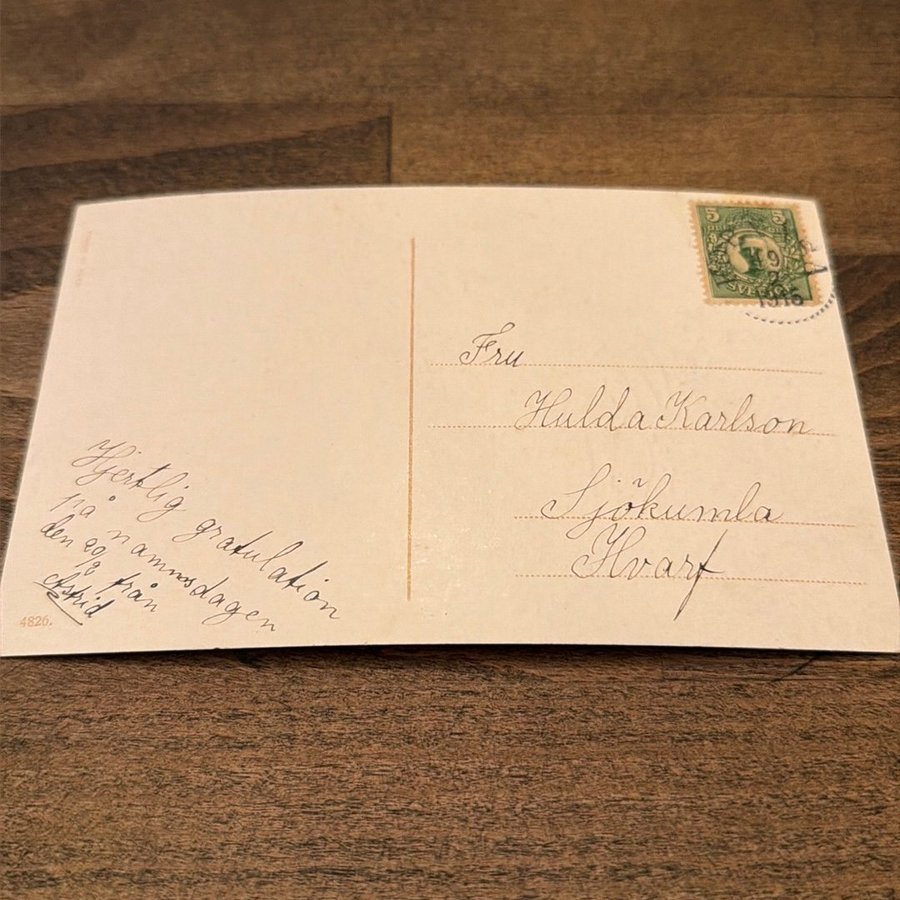 5 5
SVERIGE
19
2
1916
Fru
Hulda Karlson
Sjökumla
Hvarf
Hjertlig gratulation
på namnsdagen
den 20/2 från
Astrid
4826.